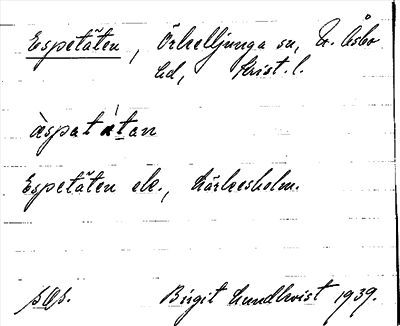 Espetåten, Örkelljunga sn, N. Åsbo
hd, Krist. l.
àspat átan
Espetåten ek., Kärkesholm.
s. Birgit Lundkvist 1939.